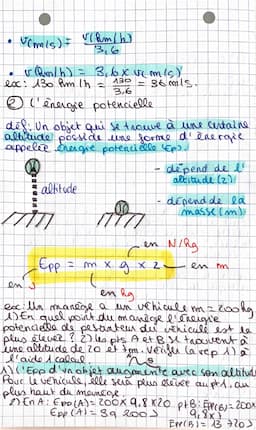 • v(m/s) = v(km/h) / 3,6
• v(km/h) = 3,6 x v(m/s)
ex: 130 km/h = 130/3,6 = 36 m/s.
② L'énergie potentielle
déf: Un objet qui se trouve à une certaine
altitude possède une forme d'énergie
appelée énergie potentielle (Ep).
altitude
- dépend de l'
altitude (z)
- dépend de la
masse (m)
en N/kg
Epp = m x g x z
en m
en J
en kg
ex: Un manège a un véhicule m = 200 kg
1) En quel point du manège l'énergie
potentielle de pesanteur du véhicule est la
plus élevée ? 2) les pts A et B se trouvent à
une altitude de 20 et 7m. Vérifie la rep 1) à
l'aide 1 calcul
1) L'Epp d'un objet augmente avec son altitude
Pour le véhicule, elle sera plus élevée au pt A, au
plus haut du manège.
2) En A: Epp(A) = 200 x 9,8 x 20
Epp(A) = 39 200 J
pt B: Epp(B) = 200 x
9,8 x 7
Epp(B) = 13 720 J